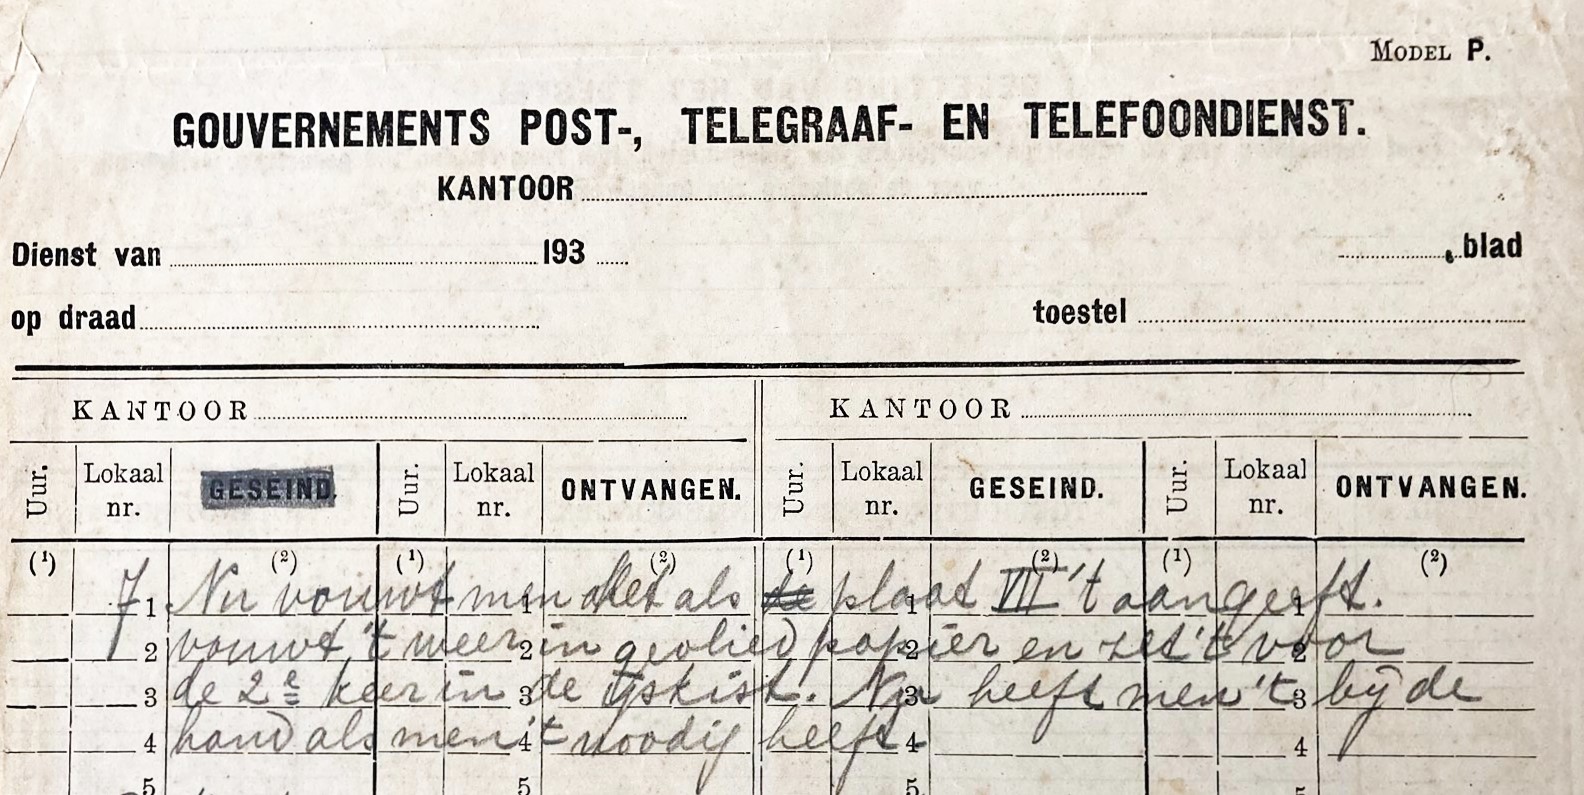 MODEL P.
GOUVERNEMENTS POST-, TELEGRAAF- EN TELEFOONDIENST.
KANTOOR
Dienst van 193 blad
op draad toestel
KANTOOR KANTOOR
Uur. Lokaal nr. GESEIND. Uur. Lokaal nr. ONTVANGEN. Uur. Lokaal nr. GESEIND. Uur. Lokaal nr. ONTVANGEN.
(1) (2) (1) (2) (1) (2) (1) (2)
7 1 Nu vouwt men 1 het als de plaat 1 VII 't aangeeft. 1
2 vouwt 't weer 2 in geolied papier 2 en zet 't voor 2
3 de 2e keer in 3 de ijskist. Nu 3 heeft men 't 3 bij de
4 hand als men 't 4 noodig heeft. 4 4
5 5 5 5